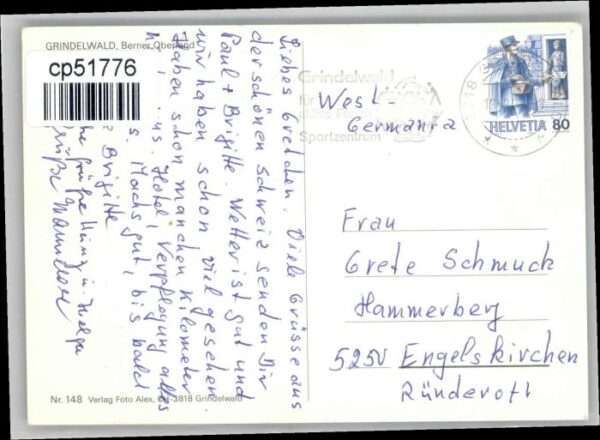 GRINDELWALD, Berner Oberland
cp51776
Liebes Gretchen. Viele Grüsse aus
der schönen Schweiz senden Dir
Paul + Brigitte. Wetter ist gut und
wir haben schon viel gesehen.
Haben schon manchen Kilometer
Hotel, Verpflegung alles
Machs gut, bis bald
Brigitte
Grüße Hannelore
Nr. 148 Verlag Foto Alex, CH-3818 Grindelwald
Grindelwald
Sportzentrum
3818
HELVETIA 80
West-
Germania
Frau
Grete Schmuck
Hammerberg
5250 Engelskirchen
Ründeroth